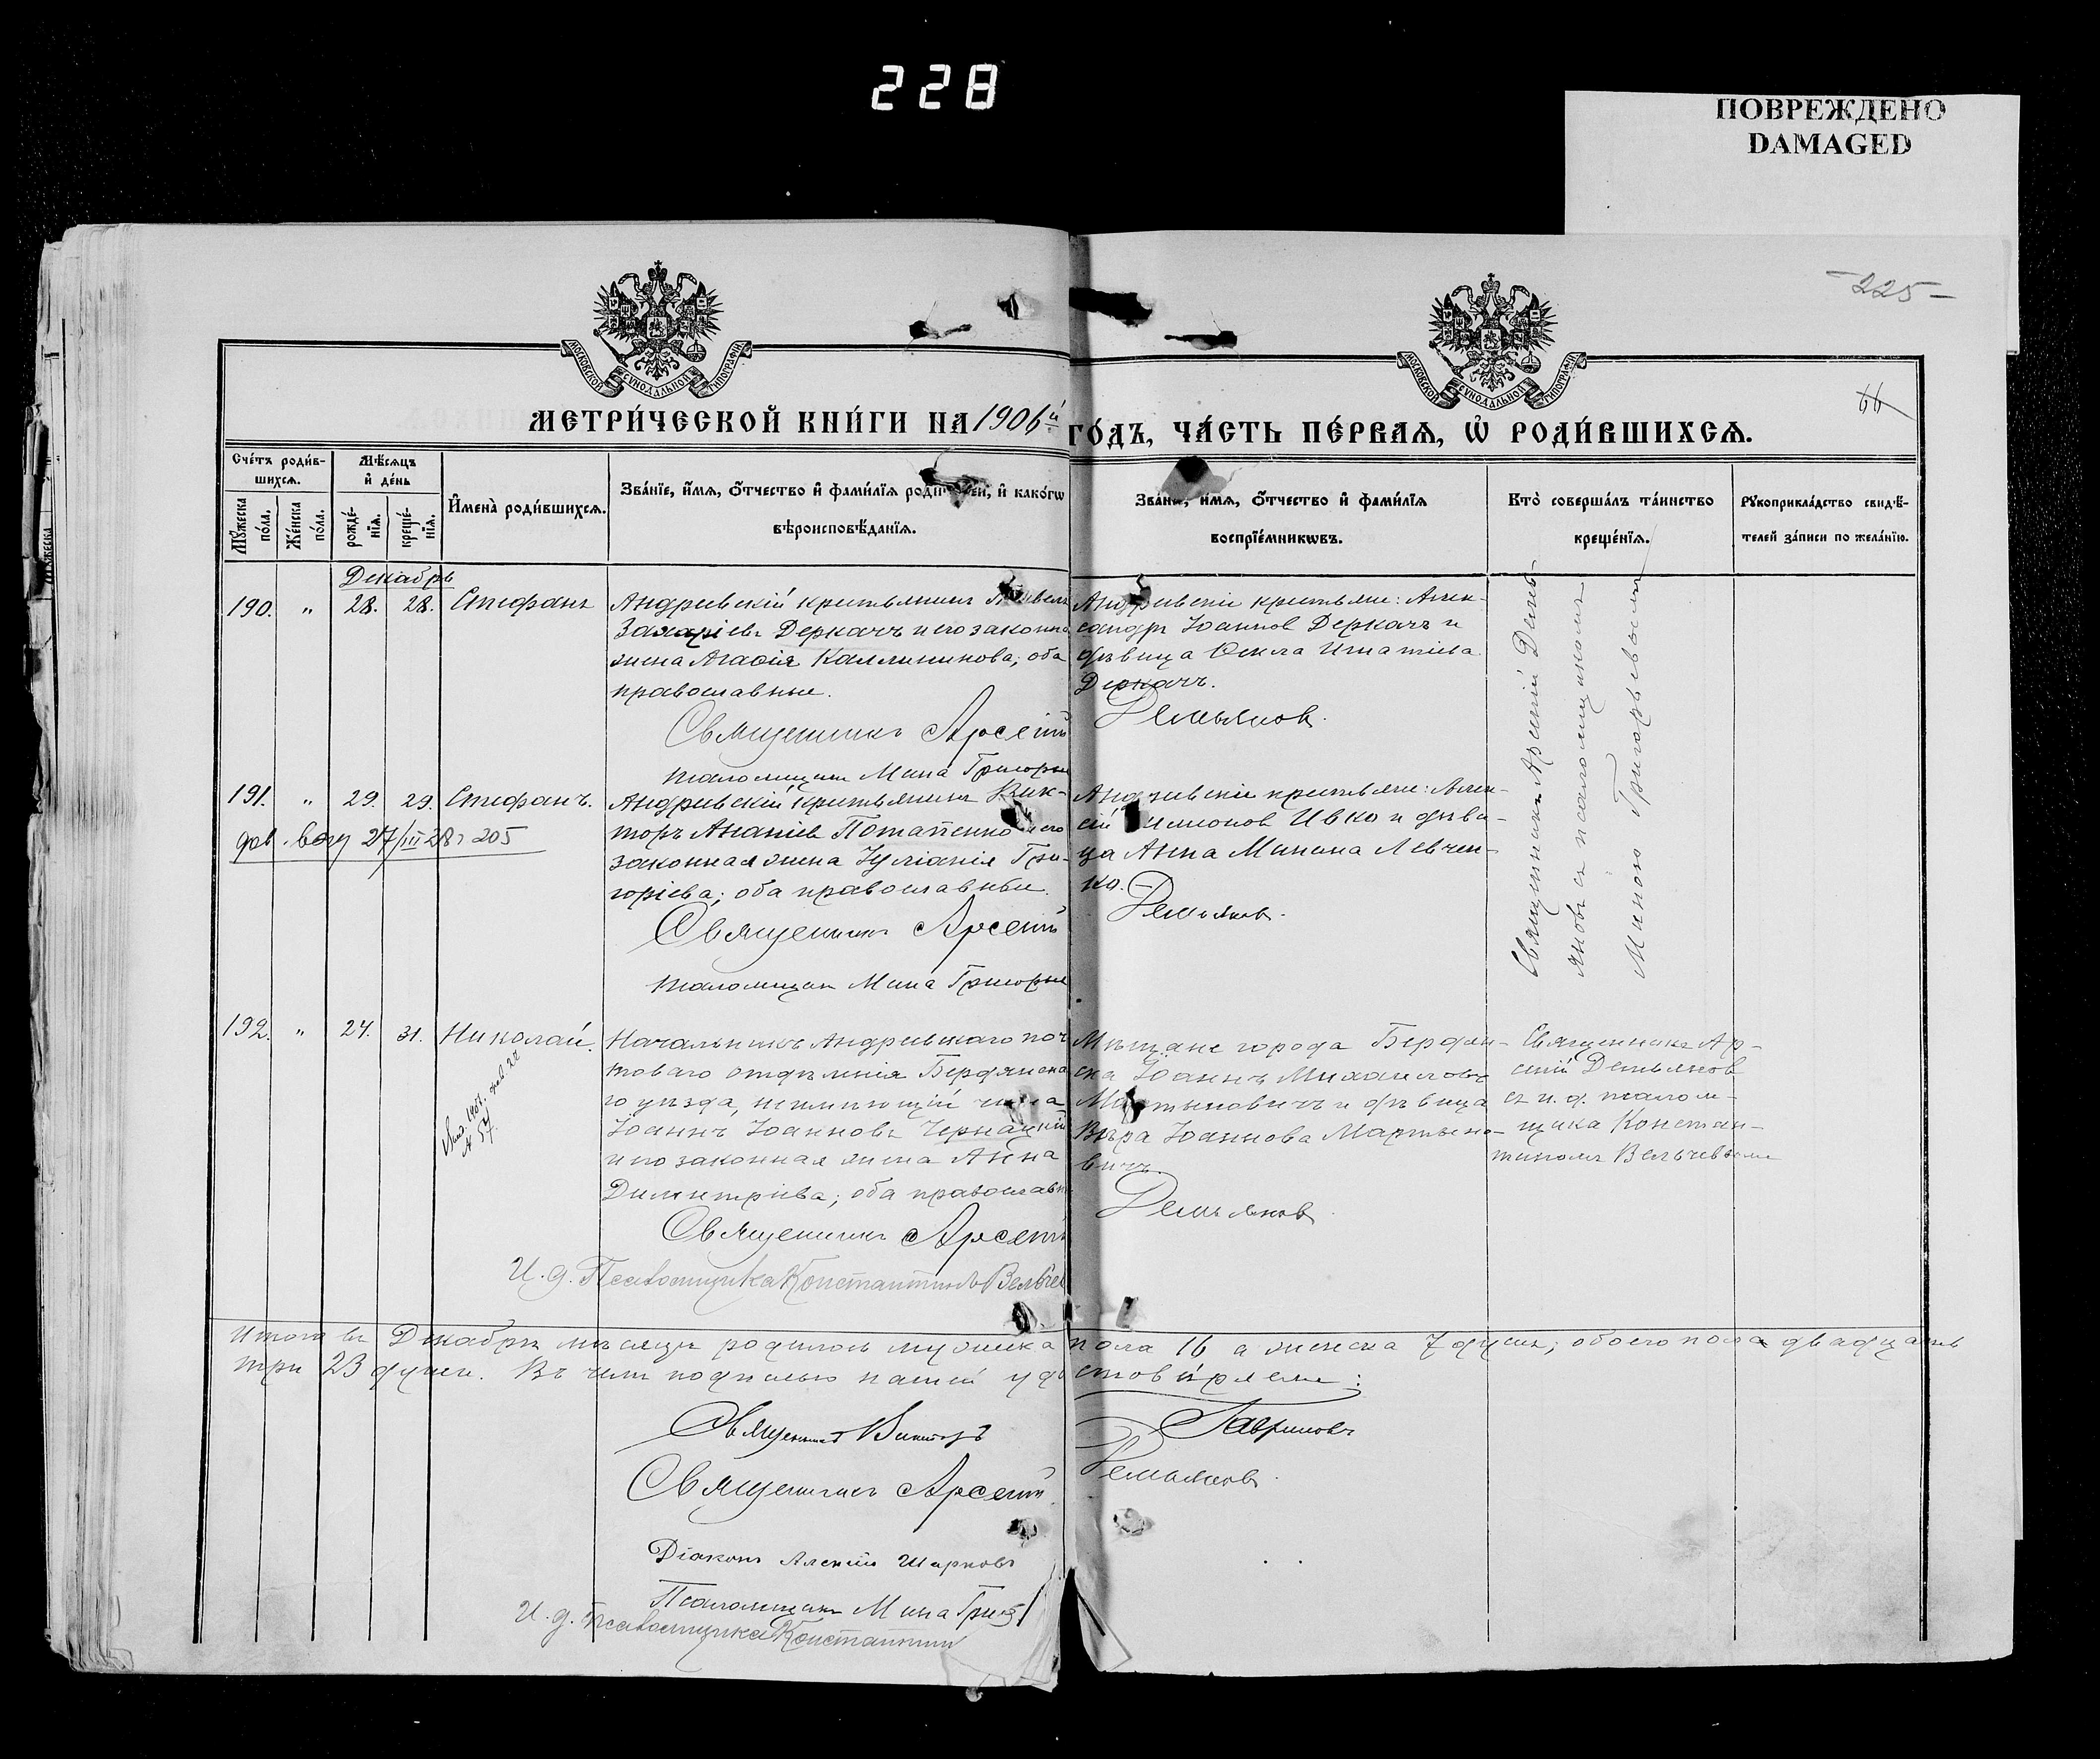 228
ПОВРЕЖДЕНО
DAMAGED
-225-
66
МОСКОВСКОЙ СѴНОДАЛЬНОЙ ТИПОГРАФІИ
МОСКОВСКОЙ СѴНОДАЛЬНОЙ ТИПОГРАФІИ
МЕТРИ́ЧЕСКОЙ КНИ́ГИ НА 1906й ГО́ДЪ, ЧА́СТЬ ПЕ́РВАѦ, Ѡ҆ РОДИ́ВШИХСѦ.
Сче́тъ роди́в-
шихсѧ.
Мꙋ́жеска по́ла.
Же́нска по́ла.
Мѣ́сѧцъ
и҆ де́нь
рожде́-
нїѧ.
креще́-
нїѧ.
И҆мена̀ роди́вшихсѧ.
Зва́нїе, и҆́мѧ, ѻ҆́тчество и҆ фами́лїѧ родителей, и҆ како́гѡ
вѣроисповѣ́данїѧ.
Зва́нїе, и҆́мѧ, ѻ҆́тчество и҆ фами́лїѧ
воспрїе́мникѡвъ.
Кто̀ соверша́лъ та́инство
креще́нїѧ.
Рꙋкоприкла́дство свидѣ́-
телей за́писи по жела́нїю.
Декабрь
190. „ 28. 28. Стефанъ
Андреевскій крестьянинъ Павелъ
Захаріевъ Деркачъ и его законная
жена Агафія Каллиникова; оба
православные.
Священникъ Арсеній Демьяновъ.
псаломщикъ Мина Григорье
Андреевскіе крестьяне: Алек-
сандръ Іоанновъ Деркачъ и
дѣвица Ѳекла Игнатіева
Деркачъ.
Священникъ Арсеній Демь-
яновъ съ псаломщикомъ
Миною Григорьевымъ
191. „ 29. 29. Стефанъ.
27/III 28 г 205
Андреевскій крестьянинъ Вик-
торъ Ананіевъ Потапенко и его
законная жена Іуліанія Гри-
горіева; оба православные.
Священникъ Арсеній Демьяновъ.
псаломщикъ Мина Григорье
Андреевскіе крестьяне: Алек-
сій Симеоновъ Ивко и дѣви-
ца Анна Минина Левчен-
ко. –
192. „ 24. 31. Николай.
Начальникъ Андреевскаго поч-
товаго отдѣленія Бердянска-
го уѣзда, неимѣющій чина
Іоаннъ Іоанновъ Чернацкій
и его законная жена Анна
Димитріева; оба православны
Священникъ Арсеній Демьяновъ
И. д. Псаломщика Константинъ Вельчев
Мѣщане города Бердян-
ска Іоаннъ Михаиловъ
Мартыновичъ и дѣвица
Вѣра Іоаннова Мартыно-
вичъ.
Священникъ Ар-
сеній Демьяновъ
съ и. д. псалом-
щика Констан-
тиномъ Вельчевымъ
Итого въ Декабрѣ мѣсяцѣ родилось мужеска пола 16 а женска 7 душъ; обоего пола двадцать
три 23 души. Въ чемъ подписью нашей удостовѣряемъ:
Священникъ Викторъ Гавриловъ
Священникъ Арсеній Демьяновъ.
Діаконъ Алексій Шарковъ
Псаломщикъ Мина Григ
И. д. Псаломщика Константинъ